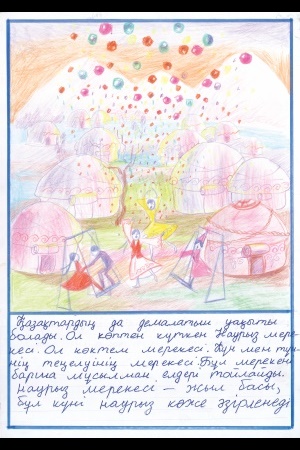 Қазақтардың да демалатын уақыты
болады. Ол көптен күткен Наурыз мере-
кесі. Ол көктем мерекесі. Күн мен түн-
нің теңелуінің мерекесі. Бұл мерекені
барша мұсылман елдері тойлайды.
Наурыз мерекесі – жыл басы,
бұл күні наурыз көже әзірленеді